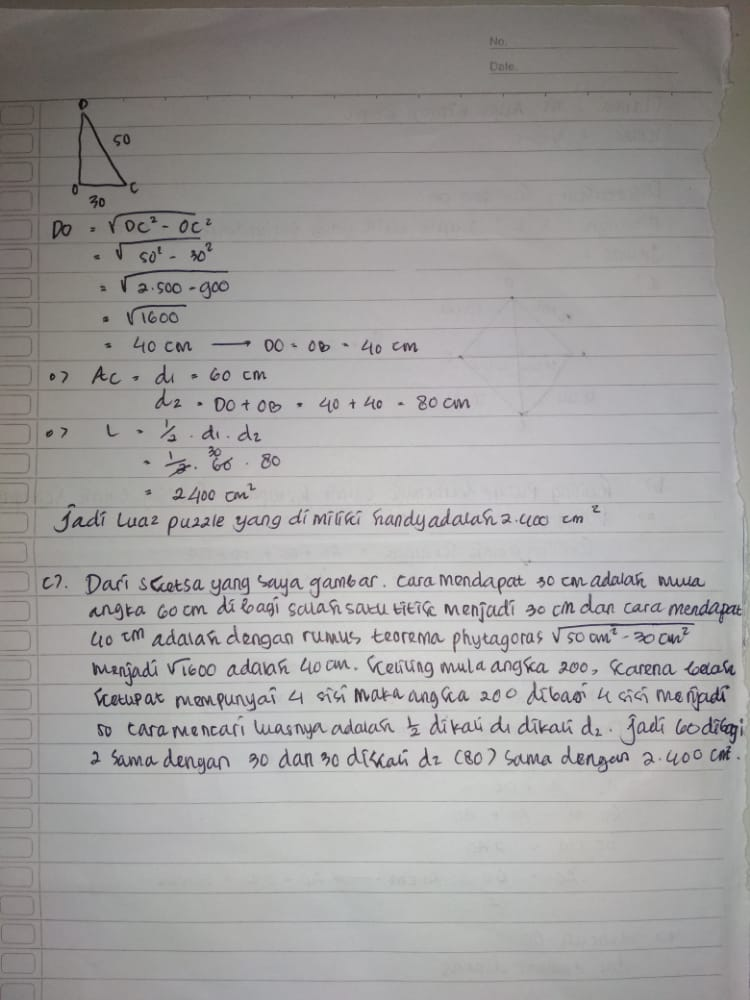 No.
Date.
D
50
O
C
30
DO = √DC² - OC²
= √50² - 30²
= √2.500 - 900
= √1600
= 40 cm → DO = OB = 40 cm
o> AC = d1 = 60 cm
d2 = DO + OB = 40 + 40 = 80 cm
o> L = 1/2 . d1 . d2
30
= 1/2 . 60 . 80
= 2400 cm²
Jadi Luaz puzzle yang dimiliki handy adalah 2.400 cm²
c). Dari sketsa yang saya gambar. cara mendapat 30 cm adalah mula
angka 60 cm dibagi salah satu titik menjadi 30 cm dan cara mendapat
40 cm adalah dengan rumus teorema phytagoras √50 cm² - 30 cm²
menjadi √1600 adalah 40 cm. Keliling mula angka 200, karena belah
ketupat mempunyai 4 sisi maka angka 200 dibagi 4 sisi menjadi
50 cara mencari luasnya adalah 1/2 dikali d1 dikali d2. Jadi 60 dibagi
2 sama dengan 30 dan 30 dikali d2 (80) sama dengan 2.400 cm².